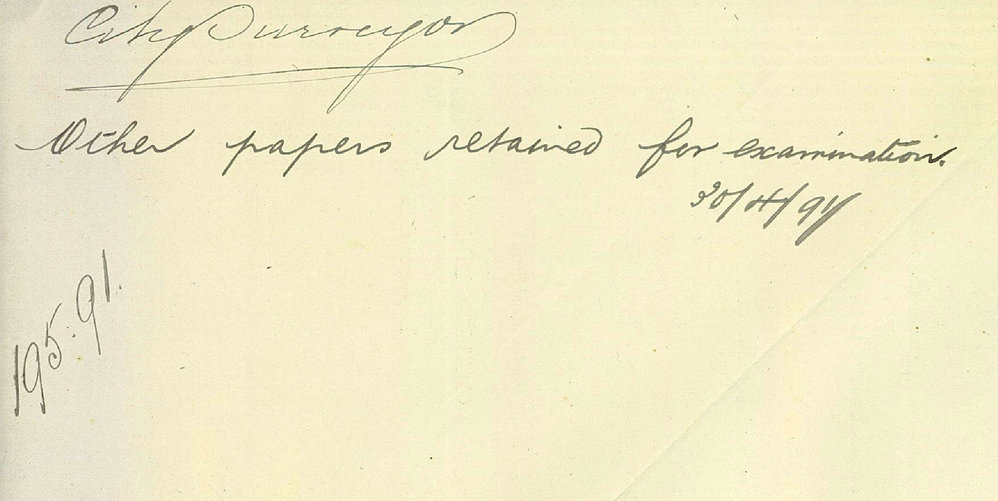 City Surveyor
Other papers retained for examination.
30/4/91
195.91.